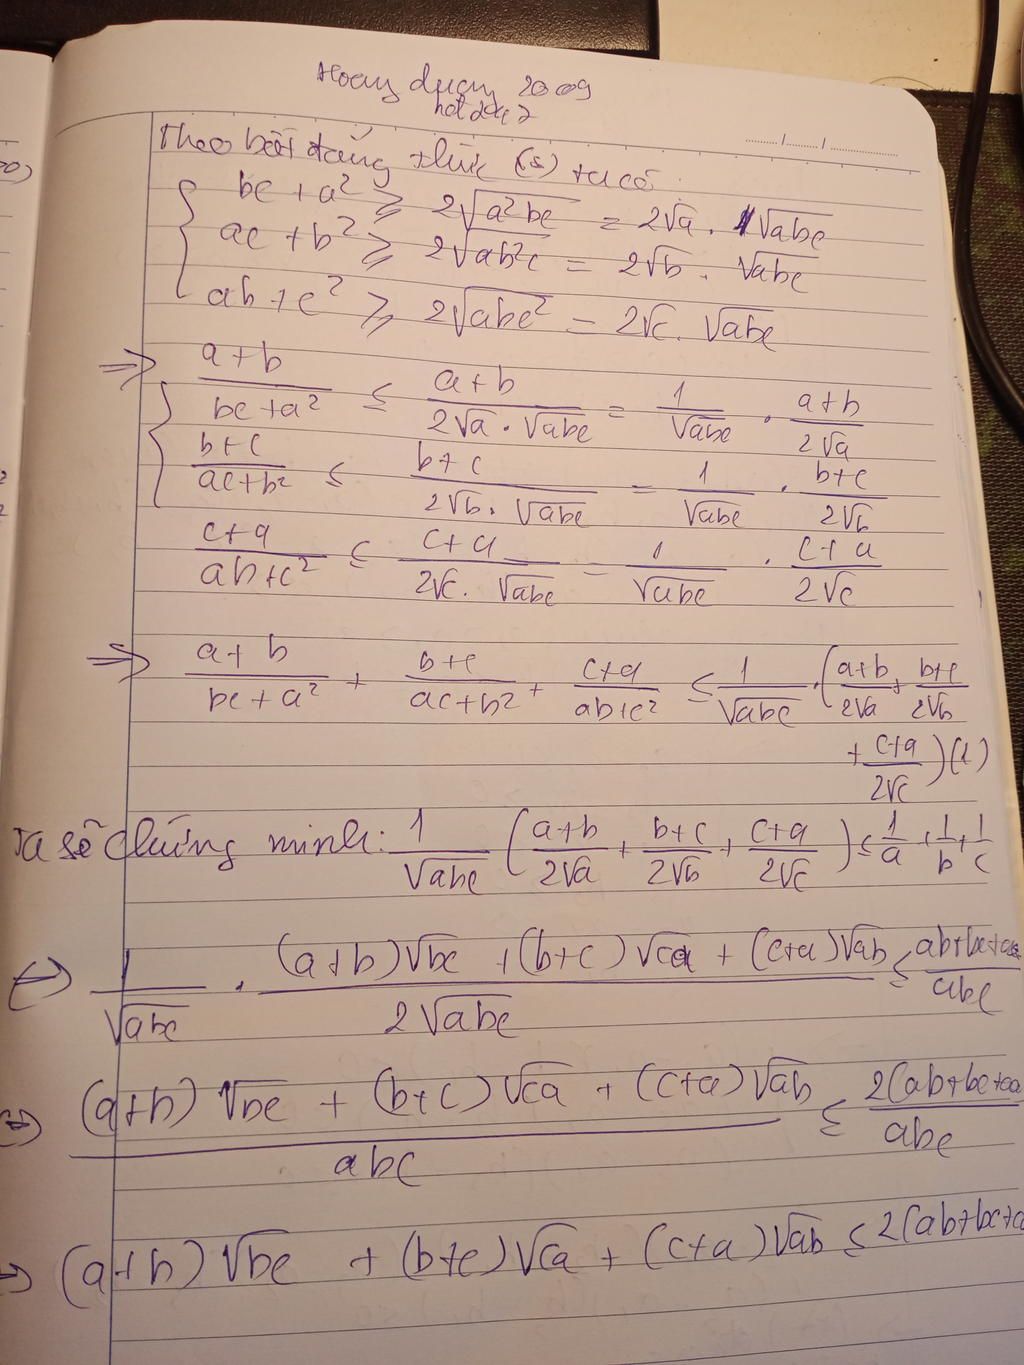 Hoang duong 2009
hot2007
Theo bất đẳng thức (s) ta có
bc + a² ≥ 2√(a²bc) = 2√a . √abc
ac + b² ≥ 2√(ab²c) = 2√b . √abc
ab + c² ≥ 2√(abc²) = 2√c . √abc
⇒ (a+b)/(bc+a²) ≤ (a+b)/(2√a . √abc) = 1/√abc . (a+b)/(2√a)
(b+c)/(ac+b²) ≤ (b+c)/(2√b . √abc) = 1/√abc . (b+c)/(2√b)
(c+a)/(ab+c²) ≤ (c+a)/(2√c . √abc) = 1/√abc . (c+a)/(2√c)
⇒ (a+b)/(bc+a²) + (b+c)/(ac+b²) + (c+a)/(ab+c²) ≤ 1/√abc . ((a+b)/(2√a) + (b+c)/(2√b)
+ (c+a)/(2√c)) (1)
Ta sẽ chứng minh: 1/√abc ((a+b)/(2√a) + (b+c)/(2√b) + (c+a)/(2√c)) ≤ 1/a + 1/b + 1/c
⇔ 1/√abc . ((a+b)√bc + (b+c)√ca + (c+a)√ab)/(2√abc) ≤ (ab+bc+ca)/abc
⇔ ((a+b)√bc + (b+c)√ca + (c+a)√ab)/abc ≤ 2(ab+bc+ca/abc
⇔ (a+b)√bc + (b+c)√ca + (c+a)√ab ≤ 2(ab+bc+c